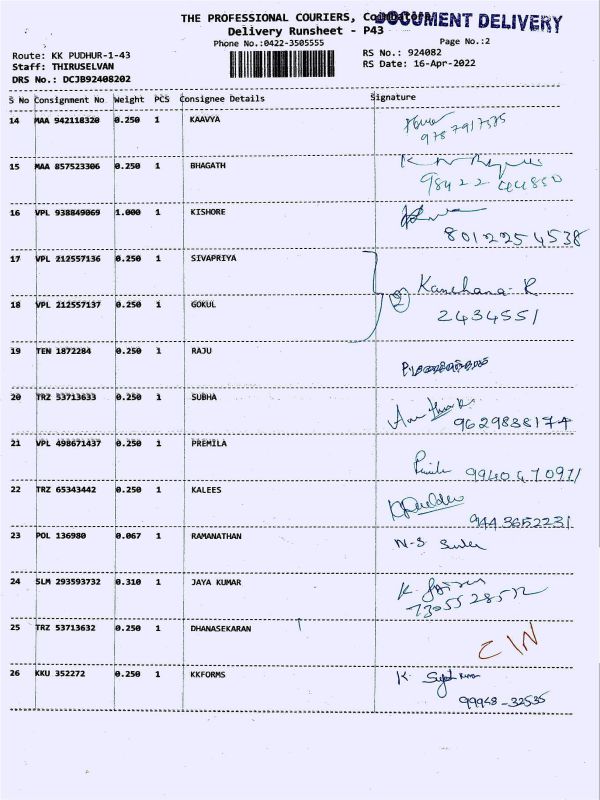 THE PROFESSIONAL COURIERS, Coimbatore
DOCUMENT DELIVERY
Delivery Runsheet - P43
Phone No.:0422-3505555
Page No.:2
Route: KK PUDHUR-1-43
RS No.: 924082
Staff: THIRUSELVAN
RS Date: 16-Apr-2022
DRS No.: DCJB92408202
S No Consignment No Weight PCS Consignee Details Signature
14 MAA 942118320 0.250 1 KAAVYA
15 MAA 857523306 0.250 1 BHAGATH
98422 44850
16 VPL 938849069 1.000 1 KISHORE
8012254538
17 VPL 212557136 0.250 1 SIVAPRIYA
2 Kanchana R
18 VPL 212557137 0.250 1 GOKUL
2434551
19 TEN 1872284 0.250 1 RAJU
20 TRZ 53713633 0.250 1 SUBHA
9629838174
21 VPL 498671437 0.250 1 PREMILA
22 TRZ 65343442 0.250 1 KALEES
944 3652231
23 POL 136980 0.067 1 RAMANATHAN
N-S
24 SLM 293593732 0.310 1 JAYA KUMAR
K.
25 TRZ 53713632 0.250 1 DHANASEKARAN
26 KKU 352272 0.250 1 KKFORMS
K.
99948-32535